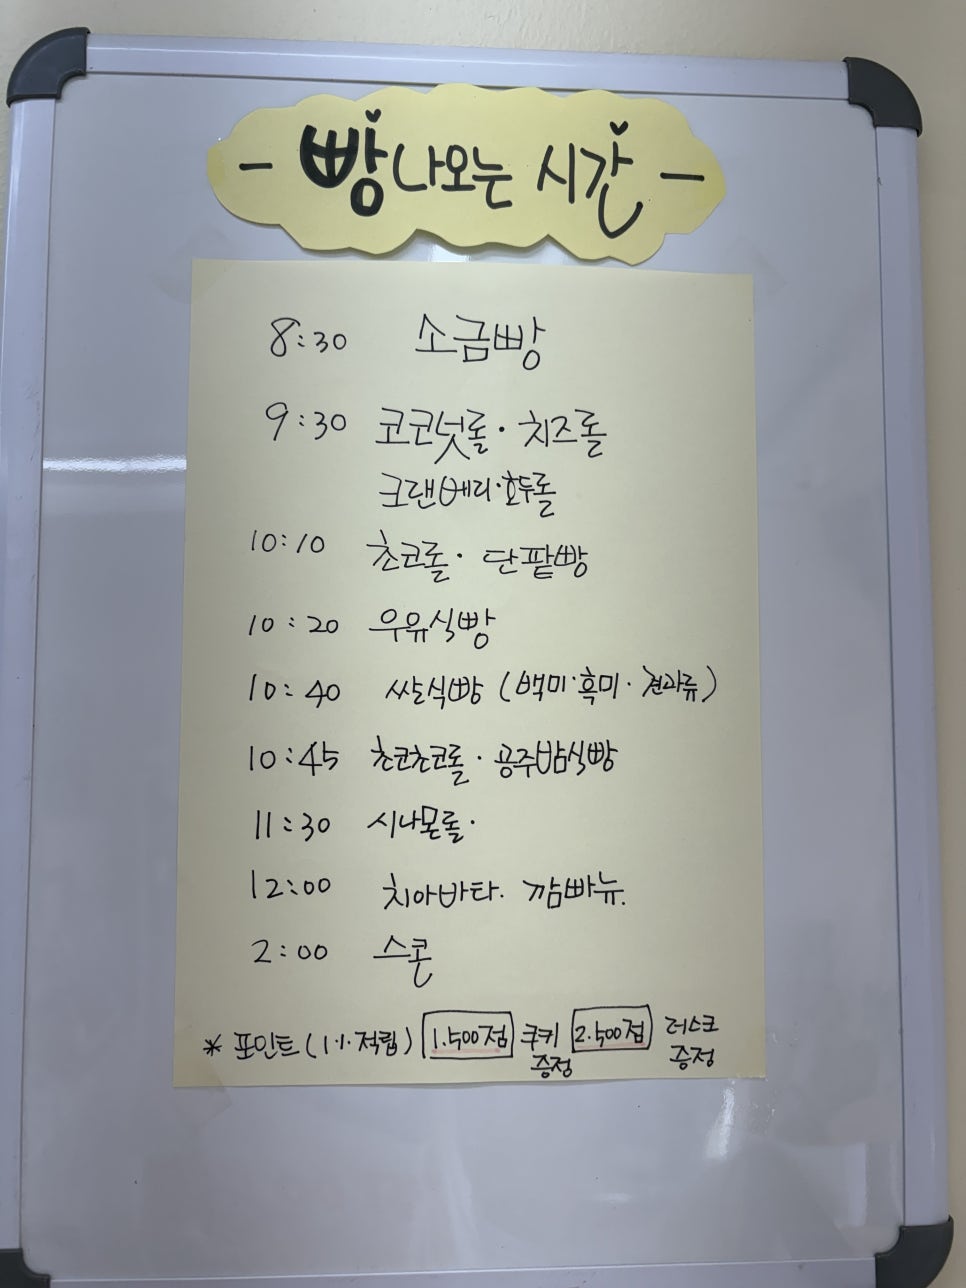 - 빵 나오는 시간 -
8:30 소금빵
9:30 코코넛롤 · 치즈롤
크랜베리 · 호두롤
10:10 초코롤 · 단팥빵
10:20 우유식빵
10:40 쌀식빵 (백미 · 흑미 · 견과류)
10:45 초코초코롤 · 공주밤식빵
11:30 시나몬롤 ·
12:00 치아바타. 깜빠뉴.
2:00 스콘
* 포인트 (1% 적립) 1.500점 쿠키 증정 2.500점 러스크 증정